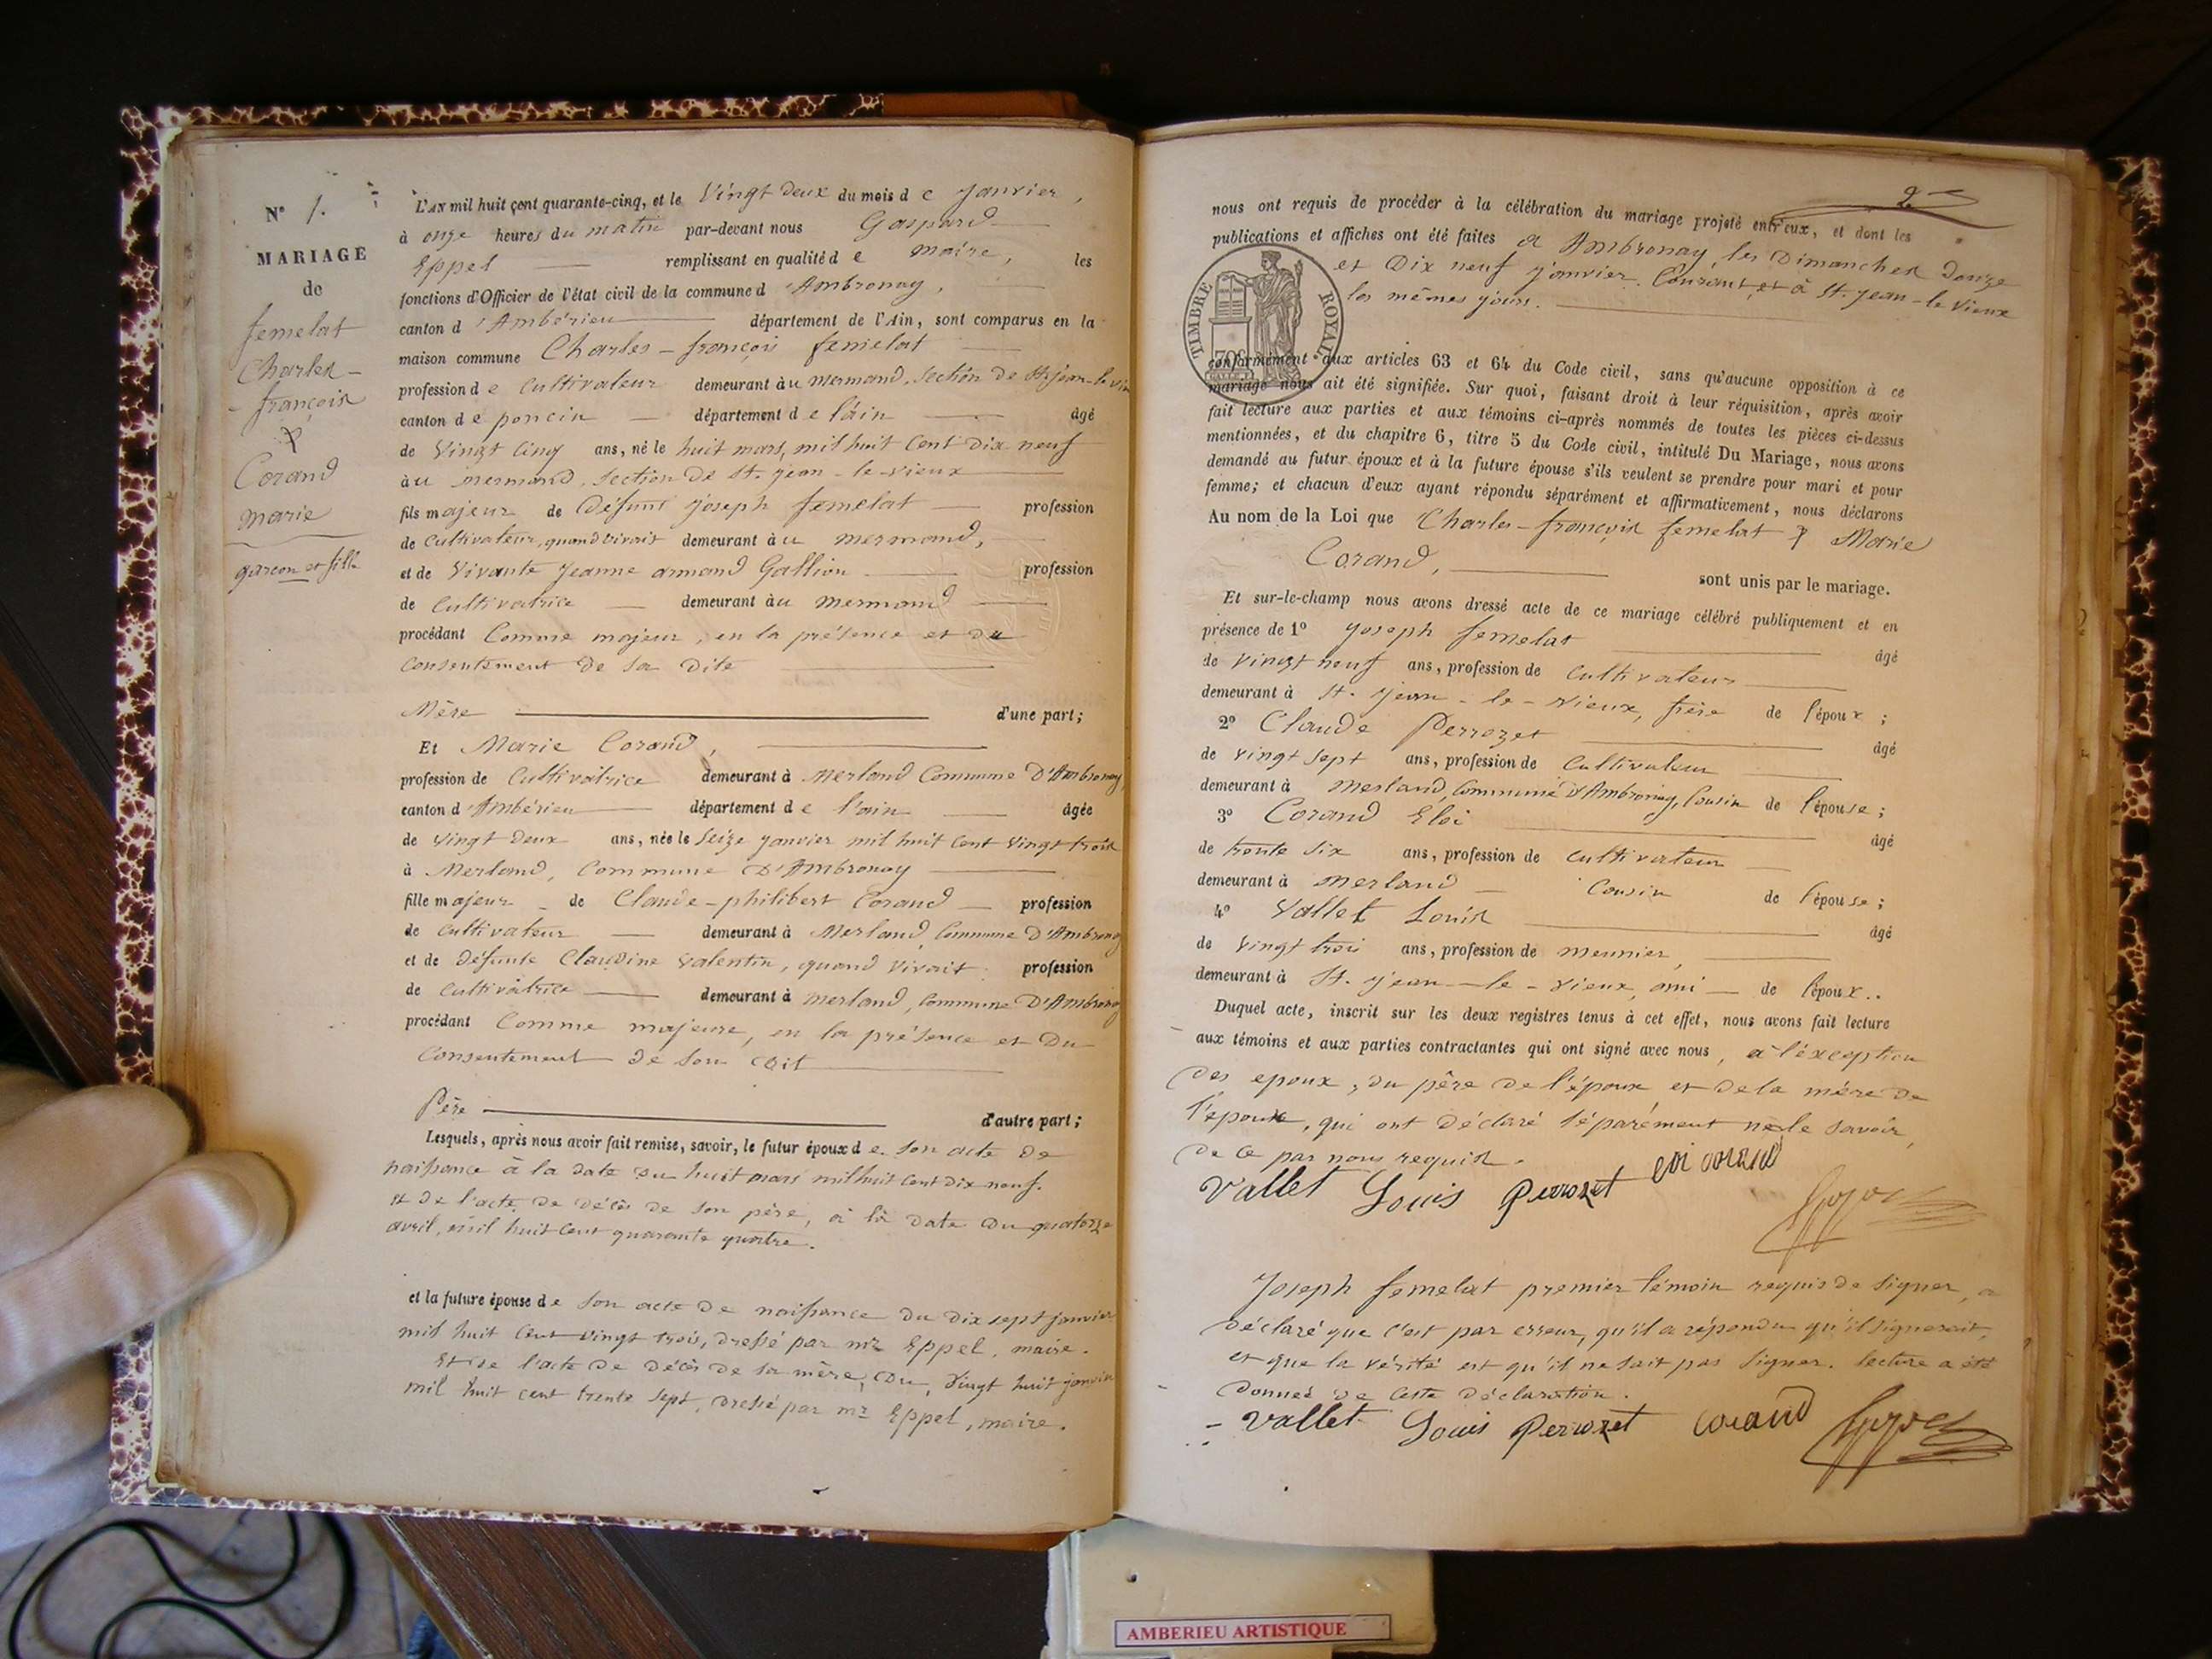 N° 1.
MARIAGE
de
femelat
Charles-
-françois
&
Corand
marie
garcon et fille
L'AN mil huit çent quarante-cinq, et le Vingt deux du mois de Janvier,
à onze heures du matin par-devant nous Gaspard
Eppel remplissant en qualité de maire, les
fonctions d'Officier de l'état civil de la commune d'Ambronay,
canton d'Ambérieu département de l'Ain, sont comparus en la
maison commune Charles-françois femelat
profession de Cultivateur demeurant au mermand, section de St. jean-le vieux
canton de poncin département de l'ain âgé
de Vingt Cinq ans, né le huit mars, mil huit Cent Dix neuf
au mermand, section de St. jean-le-vieux
fils majeur de Défunt Joseph femelat profession
de Cultivateur, quand vivait demeurant au mermand,
et de Vivante Jeanne armand Gallion profession
de Cultivatrice demeurant au mermand
procédant Comme majeur, en la présence et du
Consentement de sa dite
Mère d'une part;
Et Marie Corand,
profession de Cultivatrice demeurant à Merland Commune D'Ambronay,
canton d'Ambérieu département de l'ain âgée
de Vingt Deux ans, née le Seize janvier mil huit Cent Vingt trois
à Merland, Commune D'Ambronay
fille majeur de Claude-philibert Corand profession
de Cultivateur demeurant à Merland, Commune D'Ambronay
et de Défunte Claudine Valentin, quand Vivait profession
de Cultivatrice demeurant à Merland, Commune D'Ambronay
procédant Comme majeure, en la présence et Du
Consentement de son Dit
Père d'autre part;
Lesquels, après nous avoir fait remise, savoir, le futur époux de son acte de
naissance à la date du huit mars mil huit Cent dix neuf.
et de l'acte de décès de son père, à la date du quatorze
avril, mil huit Cent quarante quatre.
et la future épouse de son acte de naissance du dix sept janvier
mil huit Cent vingt trois, dressé par mr. Eppel, maire.
Et de l'acte de décès de sa mère, du, Vingt huit janvier
mil huit cent trente sept, dressé par mr. Eppel, maire.
2
nous ont requis de procéder à la célébration du mariage projeté entr'eux, et dont les
publications et affiches ont été faites à Ambronay, les Dimanches Douze
et Dix neuf janvier Courant, et à St. Jean-le Vieux
les mêmes jours.
TIMBRE ROYAL
70c
conformément aux articles 63 et 64 du Code civil, sans qu'aucune opposition à ce
mariage nous ait été signifiée. Sur quoi, faisant droit à leur réquisition, après avoir
fait lecture aux parties et aux témoins ci-après nommés de toutes les pièces ci-dessus
mentionnées, et du chapitre 6, titre 5 du Code civil, intitulé Du Mariage, nous avons
demandé au futur époux et à la future épouse s'ils veulent se prendre pour mari et pour
femme; et chacun d'eux ayant répondu séparément et affirmativement, nous déclarons
Au nom de la Loi que Charles-françois femelat & Marie
Corand, sont unis par le mariage.
Et sur-le-champ nous avons dressé acte de ce mariage célébré publiquement et en
présence de 1° Joseph femelat âgé
de Vingt neuf ans, profession de Cultivateur
demeurant à St. Jean-le-Vieux, frère de l'époux;
2° Claude Perrozet âgé
de Vingt Sept ans, profession de Cultivateur
demeurant à Merland, Commune d'Ambronay, Cousin de l'épouse;
3° Corand Eloi âgé
de trente Six ans, profession de Cultivateur
demeurant à Merland Cousin de l'épouse;
4° Vallet Louis âgé
de Vingt trois ans, profession de meunier,
demeurant à St. Jean-le-Vieux, ami de l'époux..
Duquel acte, inscrit sur les deux registres tenus à cet effet, nous avons fait lecture
aux témoins et aux parties contractantes qui ont signé avec nous, à l'éxception
Des epoux, du père de l'époux et de la mère de
l'époux, qui ont Déclaré séparément ne le savoir,
De ce par nous requis.
Vallet Louis Perrozet eloi corand
Joseph femelat premier témoin requis de signer, a
déclaré que c'est par erreur, qu'il a répondu qu'il signerait,
et que la vérité est qu'il ne sait pas signer. lecture a été
Donneé de Cette déclaration.
Vallet Louis Perrozet corand
AMBERIEU ARTISTIQUE